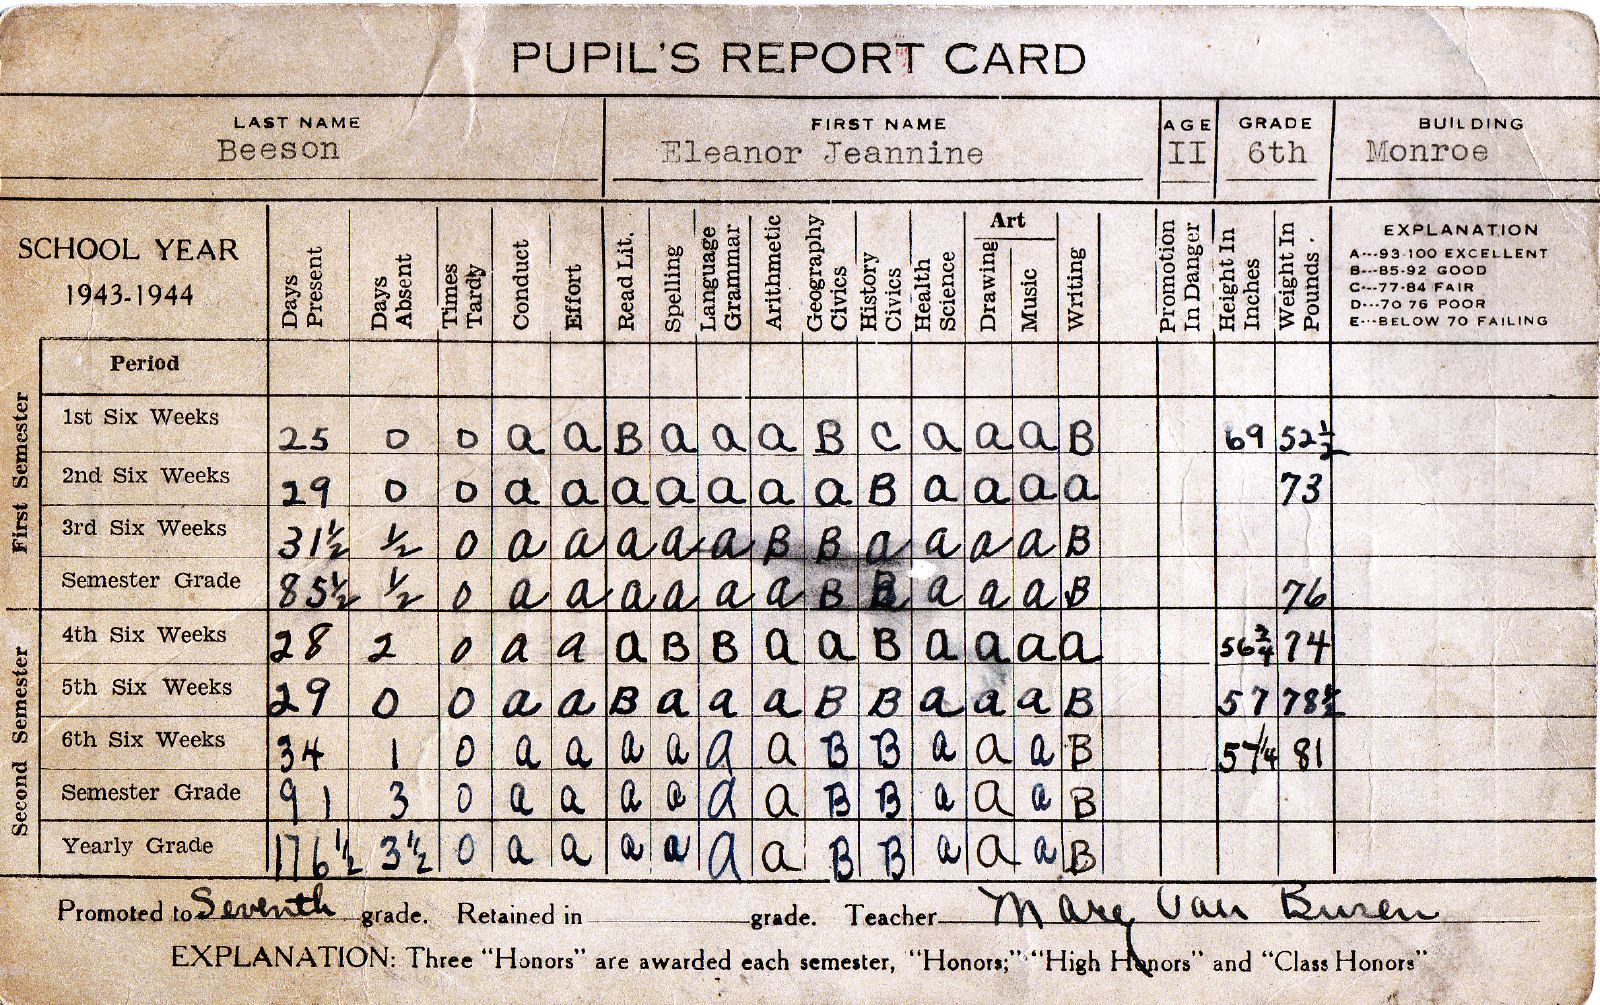 PUPIL'S REPORT CARD
LAST NAME FIRST NAME AGE GRADE BUILDING
Beeson Eleanor Jeannine II 6th Monroe
SCHOOL YEAR
1943-1944
Days Present Days Absent Times Tardy Conduct Effort Read Lit. Spelling Language Grammar Arithmetic Geography Civics History Civics Health Science Art Drawing Music Writing Promotion In Danger Height In Inches Weight In Pounds.
EXPLANATION
A---93-100 EXCELLENT
B---85-92 GOOD
C---77-84 FAIR
D---70 76 POOR
E---BELOW 70 FAILING
Period
First Semester
1st Six Weeks 25 0 0 a a B a a a B C a a a B 69 52½
2nd Six Weeks 29 0 0 a a a a a a a B a a a a 73
3rd Six Weeks 31½ ½ 0 a a a a a B B a a a a B
Semester Grade 85½ ½ 0 a a a a a a B B a a a B 76
Second Semester
4th Six Weeks 28 2 0 a a a B B a a B a a a a 56¾ 74
5th Six Weeks 29 0 0 a a B a a a B B a a a B 57 78½
6th Six Weeks 34 1 0 a a a a a a B B a a a B 57¼ 81
Semester Grade 91 3 0 a a a a a a B B a a a B
Yearly Grade 176½ 3½ 0 a a a a a a B B a a a B
Promoted to Seventh grade. Retained in grade. Teacher Mary Van Buren
EXPLANATION: Three "Honors" are awarded each semester, "Honors;" "High Honors" and "Class Honors"